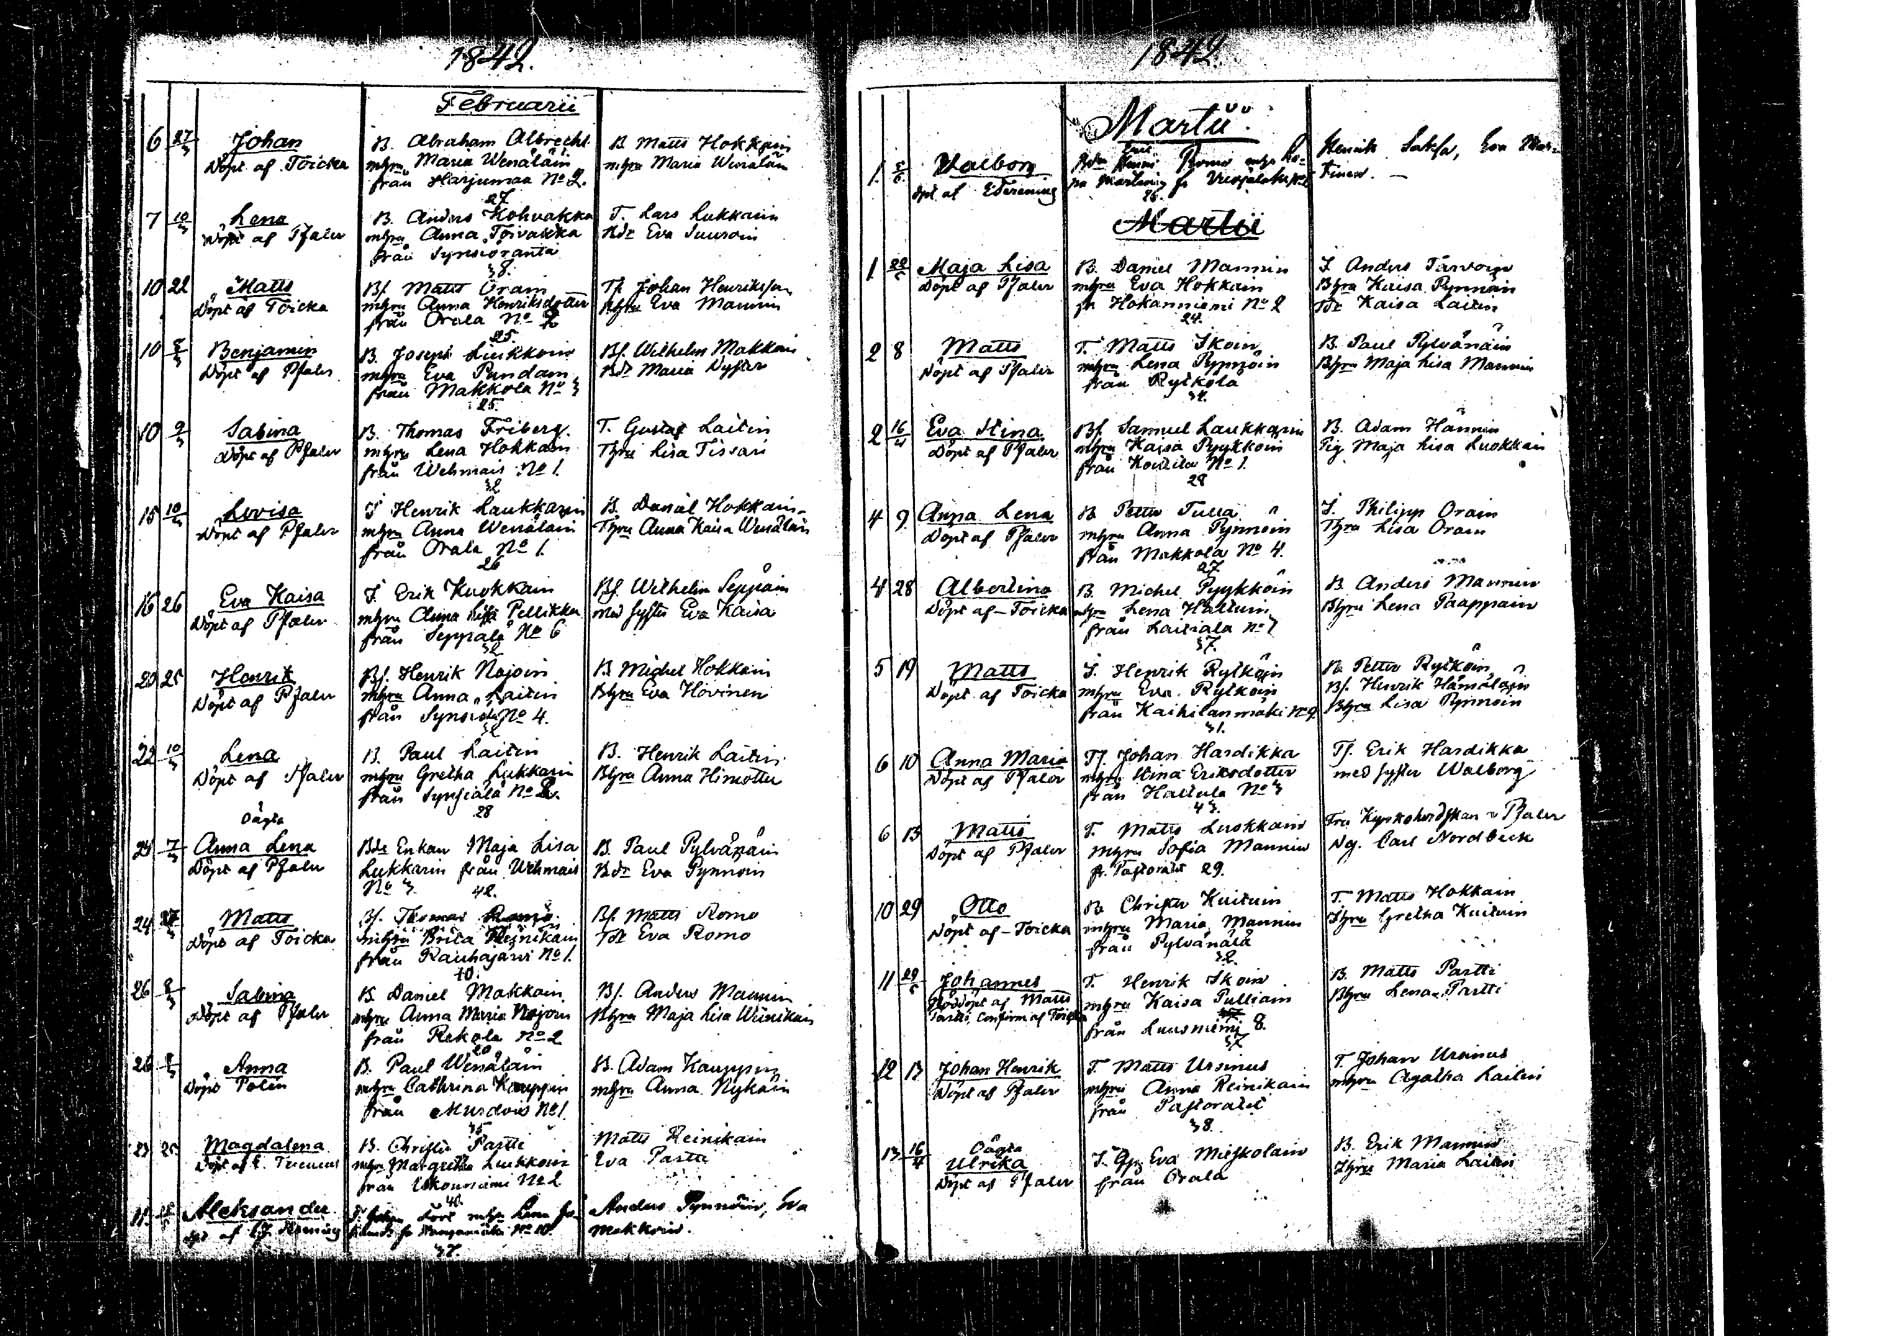 1842.
Februarii
6 27/3 Johan B. Abraham Albrecht B. Matts Hokkain
Döpt af Toicka mhru Maria Wenäläin mhru Maria Wenäläin
från Harjumaa No 2.
27
7 10/3 Lena B. Anders Kohvakka T. Lars Lukkarin
Döpt af Pfaler mhru Anna Toivakka Bdr Eva Suuroin
från Synsiöranta
38.
10 22 Matts Bf. Matts Orain Tf. Johan Henriksson
Döpt af Toicka mhru Anna Henriksdotter Bhru Eva Mannin
från Orala No
25.
10 Benjamin B. Joseph Liukkoin Bf. Wilhelm Makkoin
Döpt af Pfaler mhru Eva Pundain Bdr Maria Nyster
från Makkola No 3
25.
10 9/3 Sabina B. Thomas Friberg. T. Gustaf Laitin
Döpt af Pfaler mhru Lena Hokkain Thru Lisa Tissari
från Wehmais No 1.
32
15 10/3 Lovisa I. Henrik Laukkarin B. Daniel Hokkain
Döpt af Pfaler mhru Anna Wenäläin Thru Anna Kaisa Wenäläin
från Orala No 1.
26
16 26 Eva Kaisa I. Erik Kuokkain Bf. Wilhelm Seppäin
Döpt af Pfaler mhru Anna Lisa Pellikka med syster Eva Kaisa
från Seppälä No 6
32
20 25 Henrik Bf. Henrik Nojoin B. Michel Hokkain
Döpt af Pfaler mhru Anna Laitin Bhru Eva Hovinen
från Synsiä No 4.
22 10/3 Lena B. Paul Laitin B. Henrik Laitin
Döpt af Pfaler mhru Gretha Lukkarin Bhru Anna Himotter
från Synsiälä No 2.
28
Oägta
24 7/3 Anna Lena Bdr Enkan Maja Lisa B. Paul Pylvänäin
Döpt af Pfaler Lukkarin från Wehmais Bdr Eva Pynnöin
No 3. 42.
24 27/3 Matts Bf. Thomas Romo Bf. Matts Romo
Döpt af Toicka mhru Brita Reinikain Bdr Eva Romo
från Rauhajärvi No 1.
40.
26 8/3 Sabina B. Daniel Makkoin Bf. Anders Mannin
Döpt af Pfaler mhru Anna Maria Nojoin Bhru Maja Lisa Reinikain
från Rekola No 2
20
26 Anna B. Paul Wenäläin B. Adam Kauppin
Döpt Polén mhru Cathrina Kauppin mhru Anna Nykäin
från No 1.
35
23 25 Magdalena B. Christer Partti Matts Reinikain
Döpt af mhru Margretha Liukkoin Eva Partti
från Ukonniemi No 2
40
11 Aleksander Anders Pynnöin, Eva
No 10 Makkoin.
37
1842.
Martii.
1 Valborg Erik Romo Henrik Saksa, Eva Mar-
tinen.
26.
Martii
1 22/5 Maja Lisa B. Daniel Mannin I. Anders Tarvoin
Döpt af Pfaler mhru Eva Hokkain Bhru Kaisa Pynnöin
fr Hokanniemi No 2 Bdr Kaisa Laitin
24.
2 8 Matts T. Matts Ikoin B. Paul Pylvänäin
Döpt af Pfaler mhru Lena Pynnöin Bhru Maja Lisa Mannin
från Rytkölä
34.
2 16/4 Eva Stina Bf. Samuel Laukkarin B. Adam Hännin
Döpt af Pfaler mhru Kaisa Pyykköin Pig. Maja Lisa Luokkain
från Koivila No 1.
28
4 9 Anna Lena B. Petter Tulla I. Philipp Orain
Döpt af Pfaler mhru Anna Pynnöin Thru Lisa Orain
från Makkola No 4.
27
4 28 Albertina B. Michel Pyykköin B. Anders Mannin
Döpt af Toicka mhru Lena Hattuin Bhru Lena Paappain
från Laitiala No 7
37.
5 19 Matts I. Henrik Rytköin B. Petter Rytköin
Döpt af Toicka mhru Eva Rytköin Bf. Henrik Hämäläin
från Kaihilanmäki No 9. Bhru Lisa Pynnöin
31.
6 10 Anna Maria Tf. Johan Hardikka Tf. Erik Hardikka
Döpt af Pfaler mhru Stina Eriksdotter med syster Walborg
från Hattula No 3
43.
6 13 Matts T. Matts Luokkain Fru Kyrkoherdskan v. Pfaler
Döpt af Pfaler mhru Sofia Mannin Ng. Carl Nordbeck
fr. Pastoratet 29.
10 29 Otto B. Christer Kuituin T. Matts Hokkain
Döpt af Toicka mhru Maria Mannin Thru Gretha Kuituin
från Pylvänälä
32.
11 29/5 Johannes T. Henrik Ikoin B. Matts Partti
Nöddöpt af Matts mhru Kaisa Pulliain Bhru Lena Partti
Partti, Confirm af Toicka från Luusniemi 8.
37
12 13 Johan Henrik T. Matts Ursinus T. Johan Ursinus
Döpt af Pfaler mhru Anna Reinikain mhru Agatha Laitin
från Pastoratet
38.
13 16/4 Oägta
Ulrika I. Eva Mieskolain B. Erik Mannin
Döpt af Pfaler från Orala Thru Maria Laitin